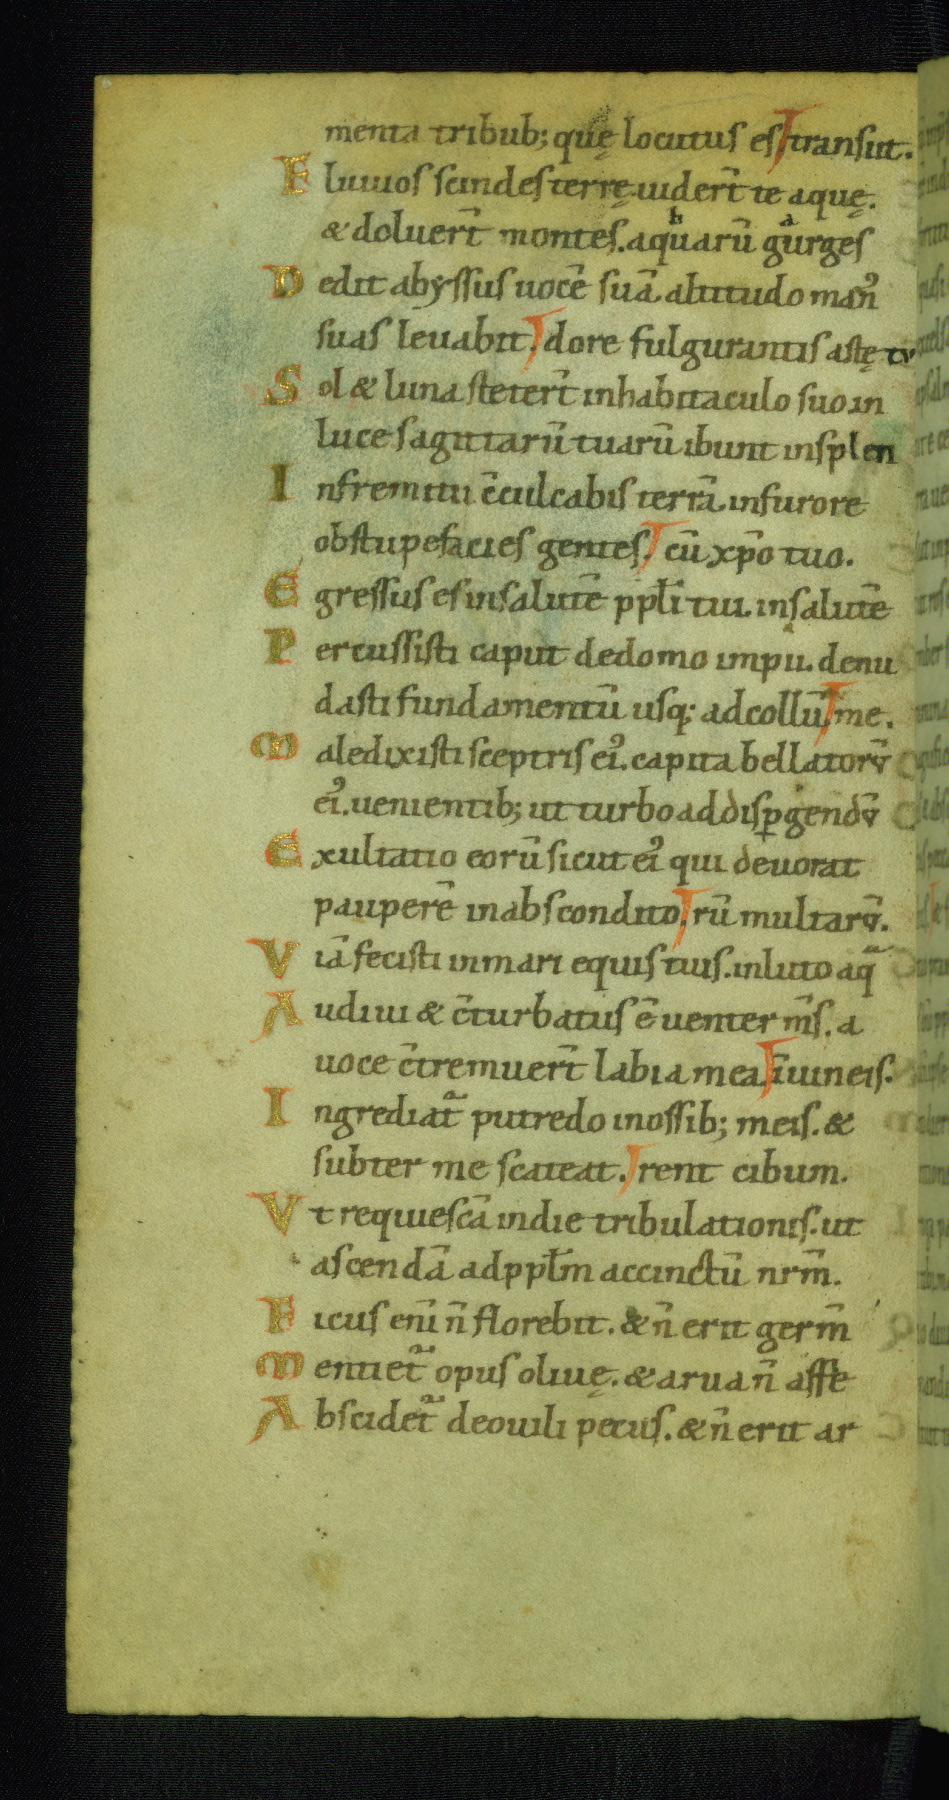 menta tribub; quę locutus es transiit.
Fluuios scindes terrę. uider̄t te aquę.
& doluer̄t montes. aquarū gurges
Dedit abyssus uocē suā. altitudo man᾽
suas leuabit. dore fulgurantis astę tu
Sol & luna steter̄t in habitaculo suo. in
luce sagittarū tuarū ibunt in splen
In fremitu c̄culcabis terrā. in furore
obstupefacies gentes. cū xp̄o tuo.
Egressus es in salutē ppl̄i tui. in salutē
Percussisti caput de domo impii. denu
dasti fundamentū usq; ad collū me.
Maledixisti sceptris ei᾽. capita bellatorū
ei᾽. uenientib; ut turbo ad disꝑgendū
Exultatio eorū sicut ei᾽ qui deuorat
pauperē in abscondito. rū multarū.
Viā fecisti in mari equis tuis. in luto aq̄
Audiui & c̄turbatus ē uenter m̄s. a
uoce c̄tremuer̄t labia mea īiuineis.
Ingrediat᷑ putredo in ossib; meis. &
subter me scateat. rent cibum.
Vt requiescā in die tribulationis. ut
ascendā ad ppl̄m accinctū nr̄m.
Ficus enī n̄ florebit. & n̄ erit germ̄
Mentiet᷑ opus oliuę. & arua n̄ affe
Abscidet᷑ de ouili pecus. & n̄ erit ar